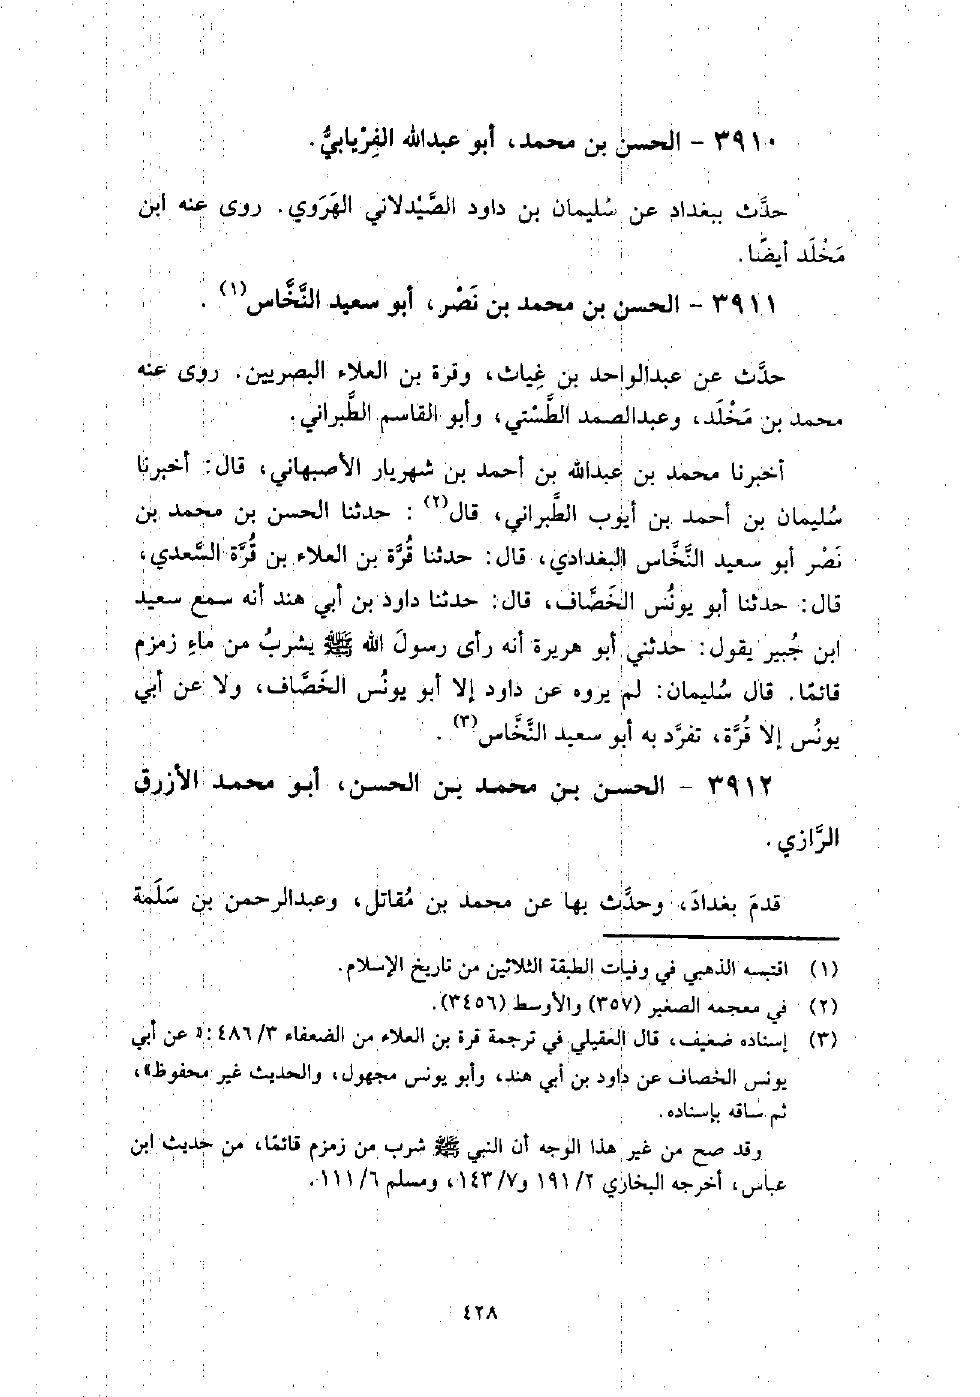 ٣٩١٠ - الحسن بن محمد، أبو عبدالله الفِرْيابيُّ.
حدَّث ببغداد عن سُليمان بن داود الصَّيْدلاني الهَرَوي. روى عنه ابن
مَخْلَد أيضًا.
٣٩١١ - الحسن بن محمد بن نَصْر، أبو سعيد النَّخَّاس(١).
حدَّث عن عبدالواحد بن غِياث، وقرة بن العلاء البصريين. روى عنه
محمد بن مَخْلَد، وعبدالصمد الطَّسْتي، وأبو القاسم الطَّبراني.
أخبرنا محمد بن عبدالله بن أحمد بن شهريار الأصبهاني، قال: أخبرنا
سُليمان بن أحمد بن أيوب الطَّبراني، قال(٢): حدثنا الحسن بن محمد بن
نَصْر أبو سعيد النَّخَّاس البغدادي، قال: حدثنا قُرَّة بن العلاء بن قُرَّة السَّعدي،
قال: حدثنا أبو يونُس الخَصَّاف، قال: حدثنا داود بن أبي هند أنه سمع سعيد
ابن جُبير يقول: حدثني أبو هريرة أنه رأى رسولَ الله ﷺ يشربُ من ماءِ زمزم
قائمًا. قال سُليمان: لم يروه عن داود إلا أبو يونُس الخَصَّاف، ولا عن أبي
يونُس إلا قُرَّة، تفرَّد به أبو سعيد النَّخَّاس(٣).
٣٩١٢ - الحسن بن محمد بن الحسن، أبو محمد الأزرق
الرَّازي.
قدمَ بغدادَ، وحدَّث بها عن محمد بن مُقاتل، وعبدالرحمن بن سَلَمة
(١) اقتبسه الذهبي في وفيات الطبقة الثلاثين من تاريخ الإسلام.
(٢) في معجمه الصغير (٣٥٧) والأوسط (٣٤٥٦).
(٣) إسناده ضعيف، قال العقيلي في ترجمة قرة بن العلاء من الضعفاء ٣/ ٤٨٦: «عن أبي
يونس الخصاف عن داود بن أبي هند، وأبو يونس مجهول، والحديث غير محفوظ»،
ثم ساقه بإسناده.
وقد صح من غير هذا الوجه أن النبي ﷺ شرب من زمزم قائمًا، من حديث ابن
عباس، أخرجه البخاري ٢/ ١٩١ و٧/ ١٤٣، ومسلم ٦/ ١١١.
٤٢٨